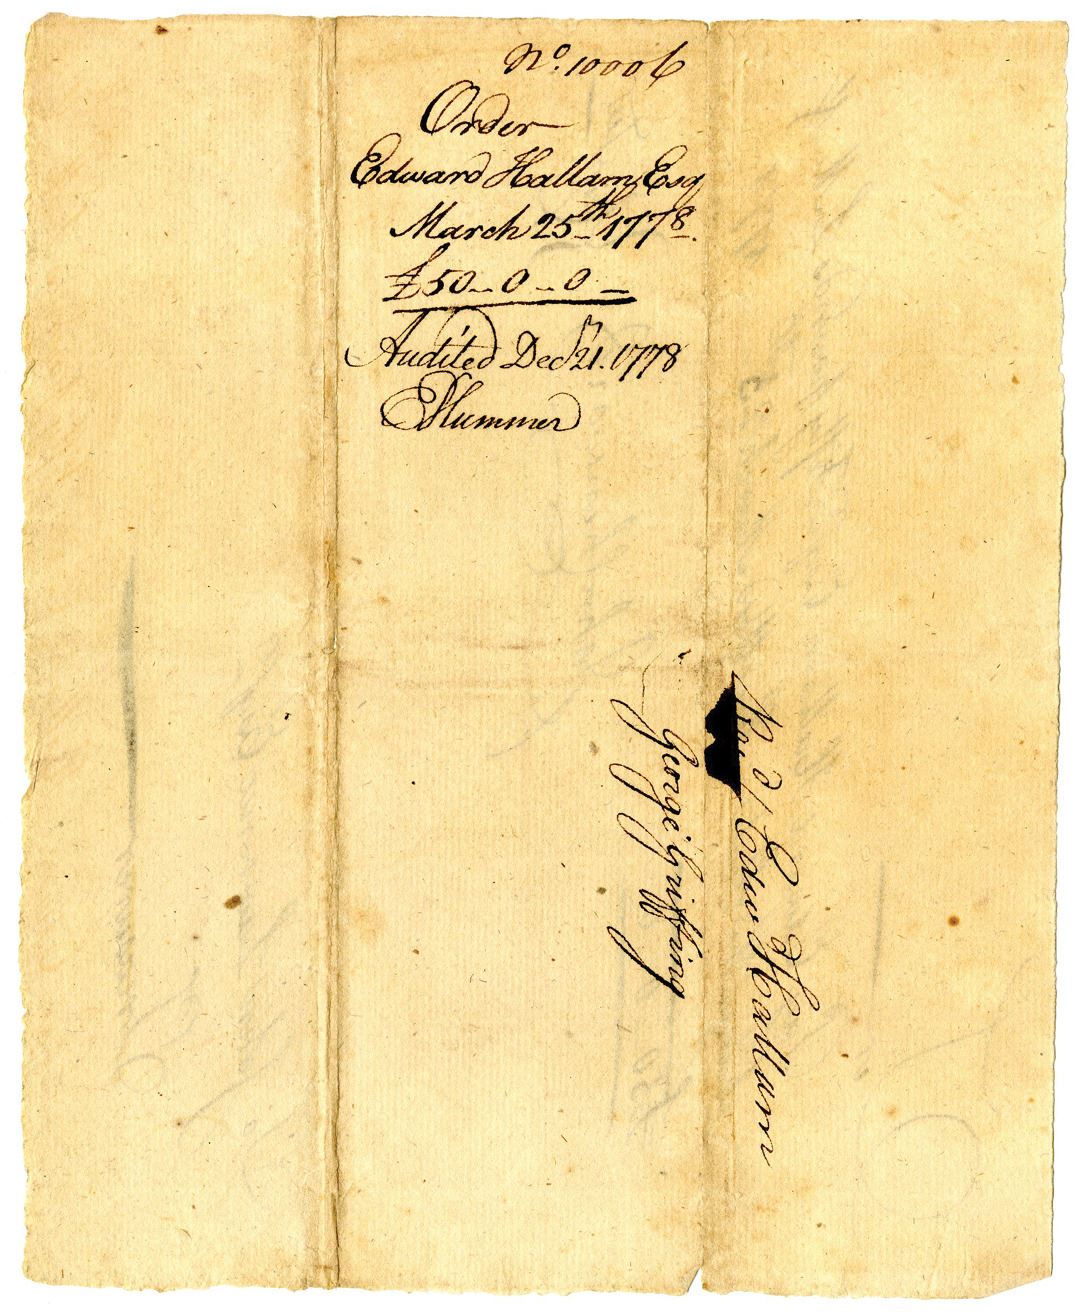 No. 10006
Order
Edward Hallam Esq
March 25th 1778.
£50--0--0-
Audited Decr 21. 1778
EPlummer
Rec'd / Edwd Hallam
George Griffing